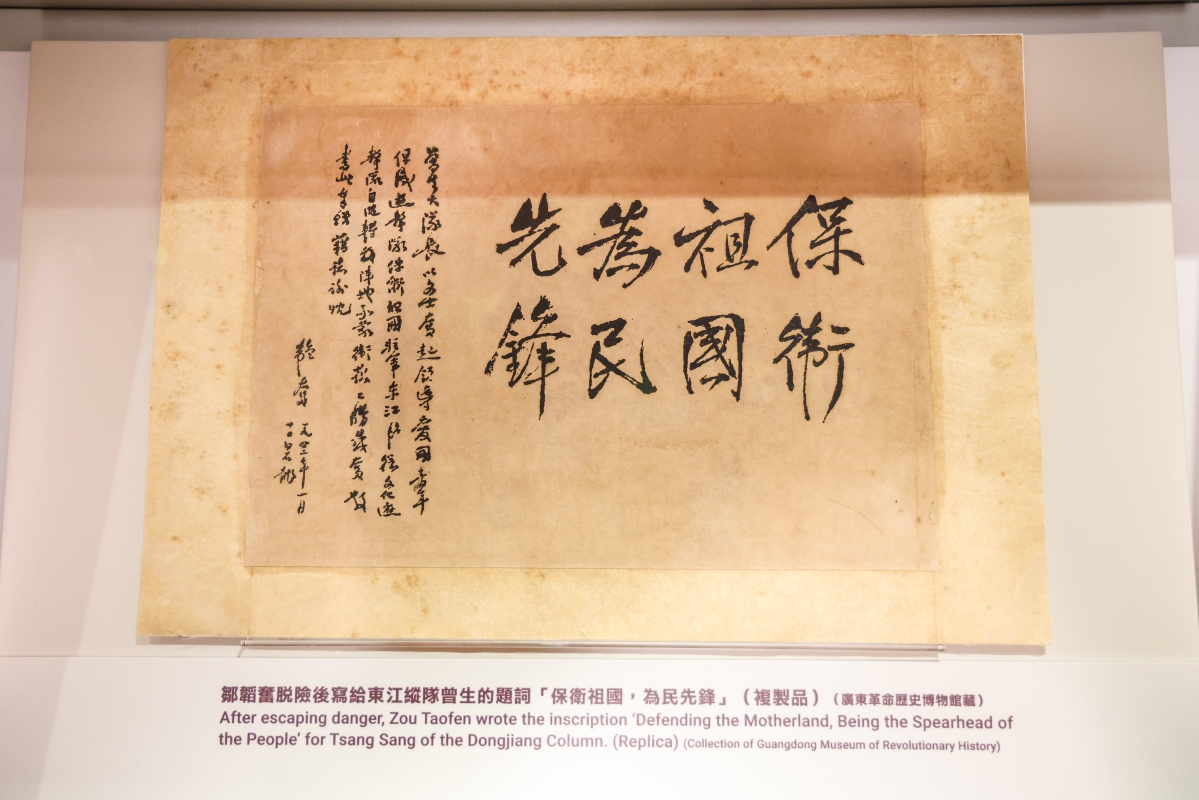 保衛
祖國
為民
先鋒
曾生大隊長以文士奮起領導愛國青年
組成遊擊隊保衛祖國駐軍東江 文化遊
擊隊自港轉移陣地承蒙衛護 勝感奮敬
書此奉贈藉誌謝忱
韜奮 一九四二年一月
鄒韜奮脱險後寫給東江縱隊曾生的題詞「保衛祖國，為民先鋒」（複製品）（廣東革命歷史博物館藏）
After escaping danger, Zou Taofen wrote the inscription ‘Defending the Motherland, Being the Spearhead of
the People’ for Tsang Sang of the Dongjiang Column. (Replica) (Collection of Guangdong Museum of Revolutionary History)